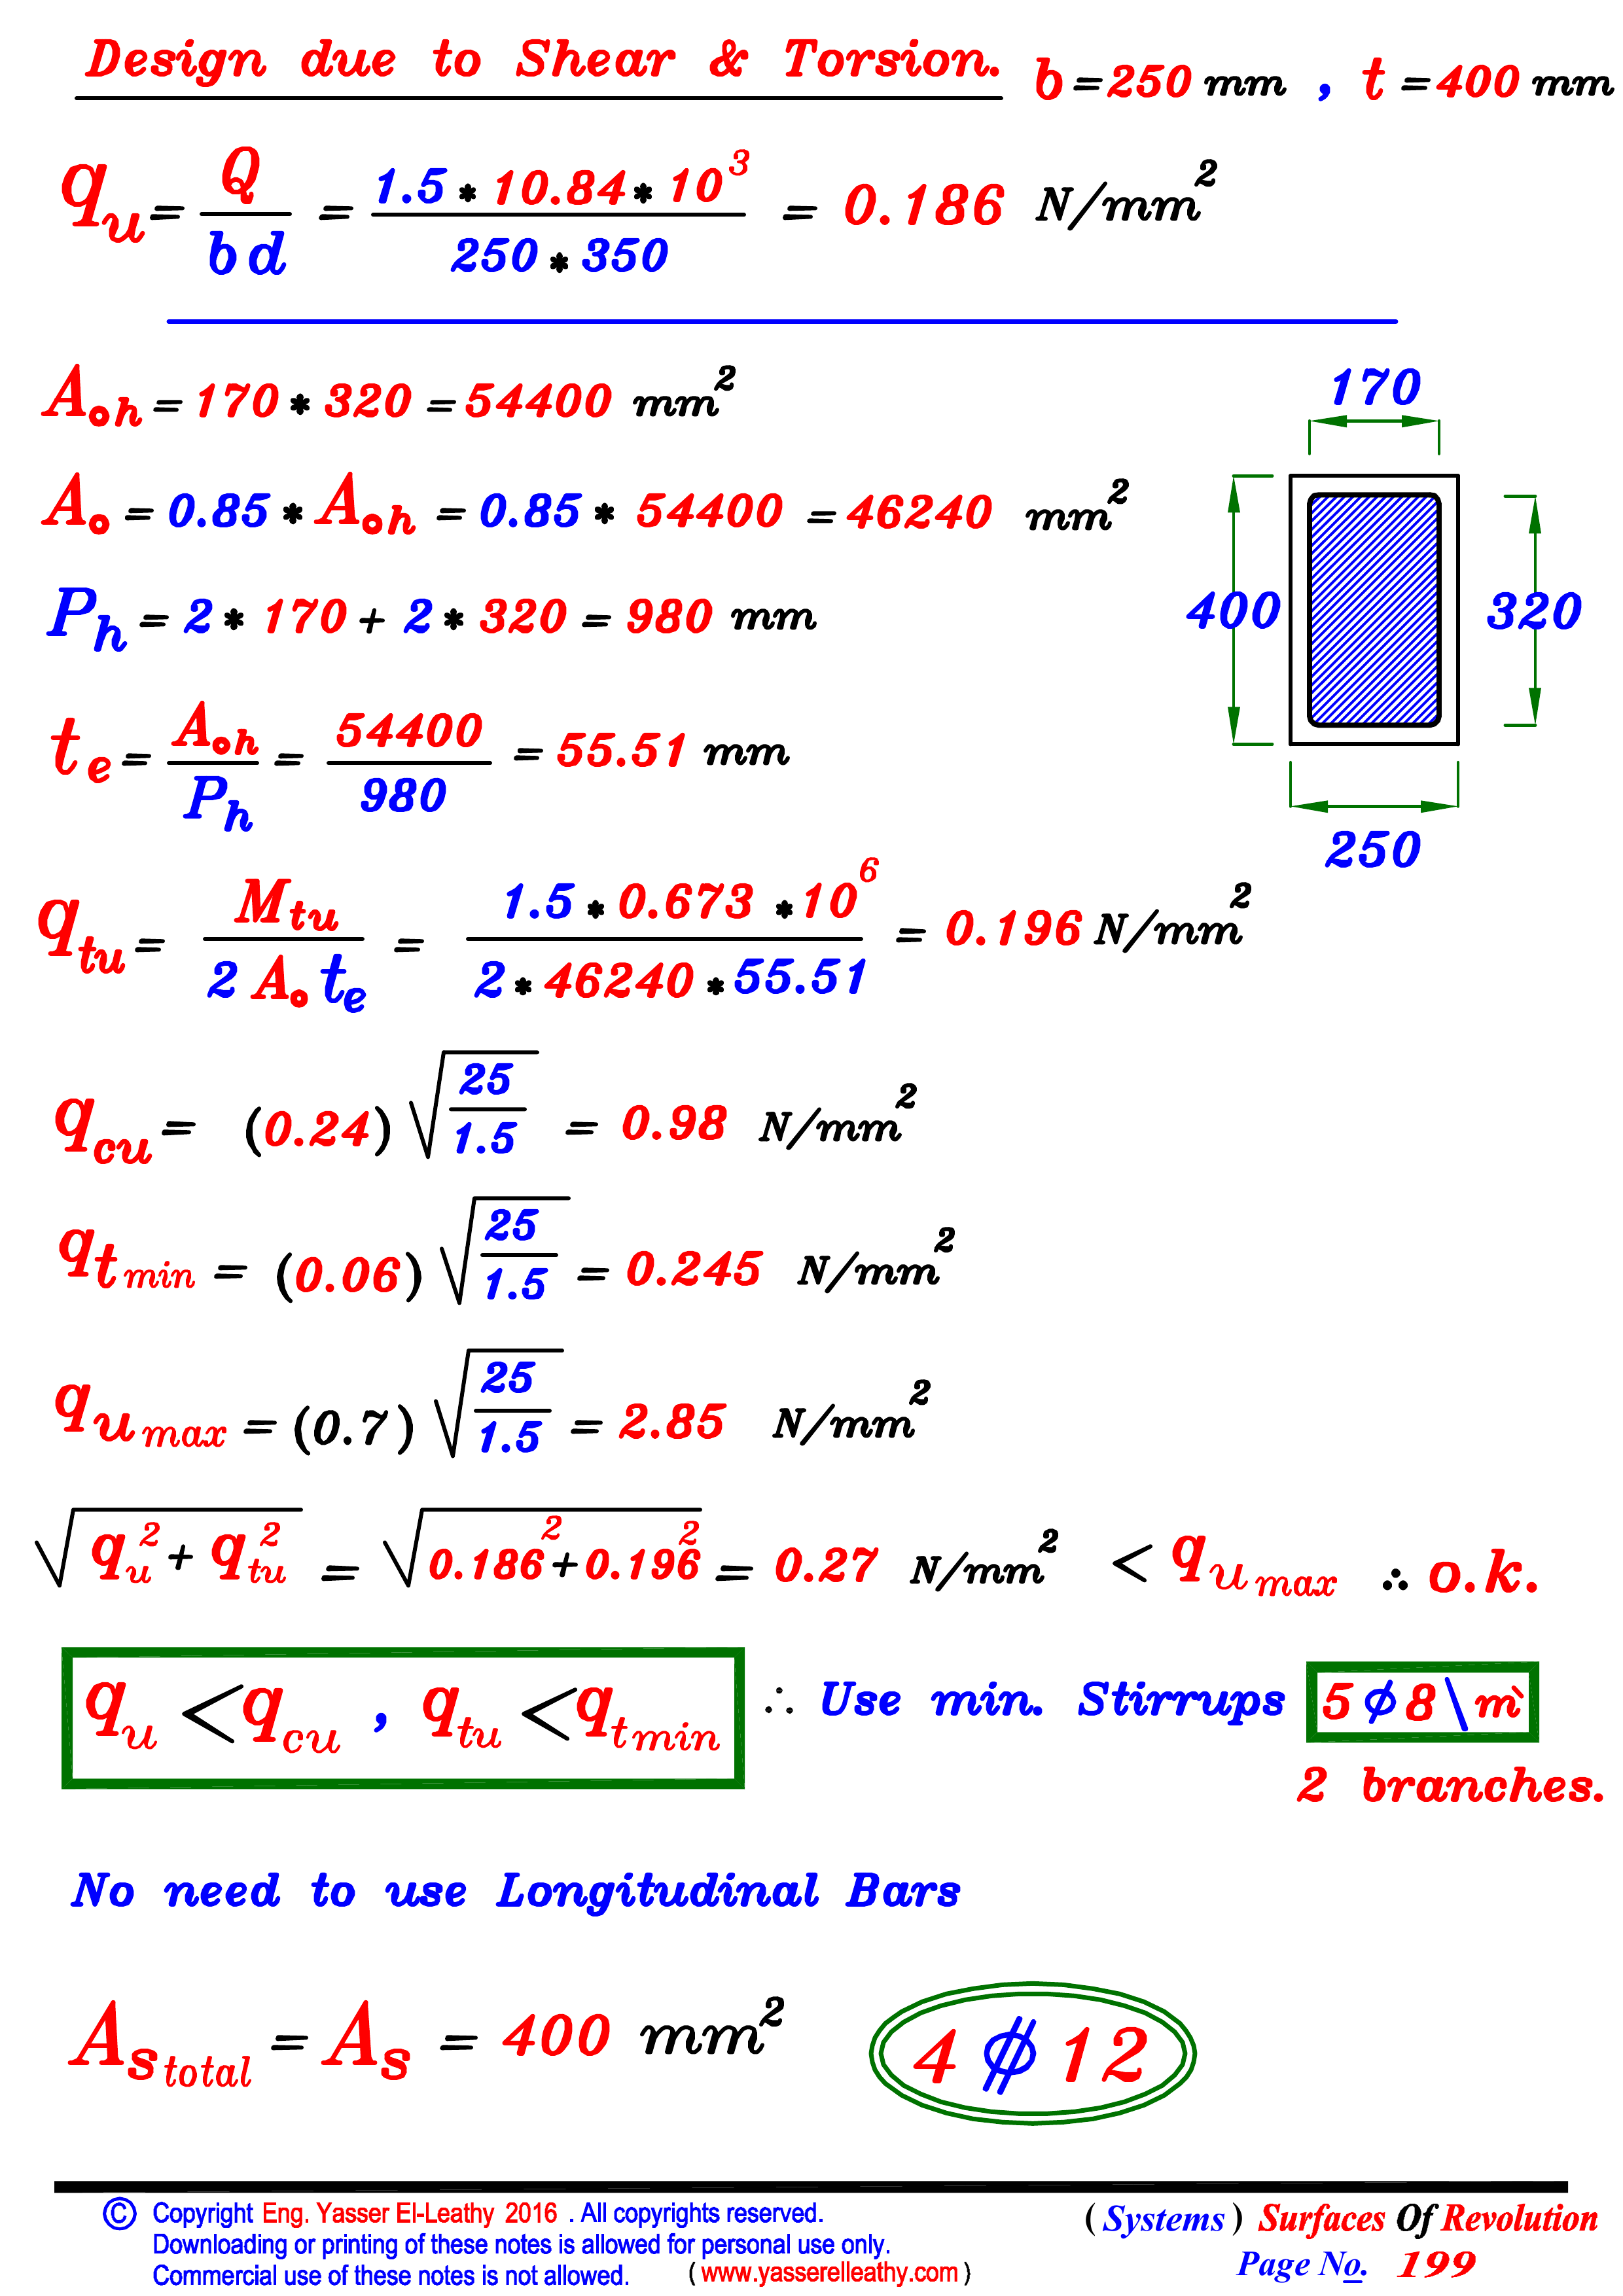 Design due to Shear & Torsion. b = 250 mm , t = 400 mm
q_u = Q / b d = 1.5 * 10.84 * 10^3 / 250 * 350 = 0.186 N/mm^2
A_oh = 170 * 320 = 54400 mm^2
170
A_o = 0.85 * A_oh = 0.85 * 54400 = 46240 mm^2
P_h = 2 * 170 + 2 * 320 = 980 mm
400 320
t_e = A_oh / P_h = 54400 / 980 = 55.51 mm
250
q_tu = M_tu / 2 A_o t_e = 1.5 * 0.673 * 10^6 / 2 * 46240 * 55.51 = 0.196 N/mm^2
q_cu = (0.24) √(25 / 1.5) = 0.98 N/mm^2
q_t min = (0.06) √(25 / 1.5) = 0.245 N/mm^2
q_u max = (0.7) √(25 / 1.5) = 2.85 N/mm^2
√(q_u^2 + q_tu^2) = √(0.186^2 + 0.196^2) = 0.27 N/mm^2 < q_u max ∴ o.k.
q_u < q_cu , q_tu < q_t min ∴ Use min. Stirrups 5 ϕ 8 \ m`
2 branches.
No need to use Longitudinal Bars
A_s total = A_s = 400 mm^2 4 ϕ 12
© Copyright Eng. Yasser El-Leathy 2016 . All copyrights reserved.
Downloading or printing of these notes is allowed for personal use only.
Commercial use of these notes is not allowed. ( www.yasserelleathy.com )
( Systems ) Surfaces Of Revolution
Page No. 199